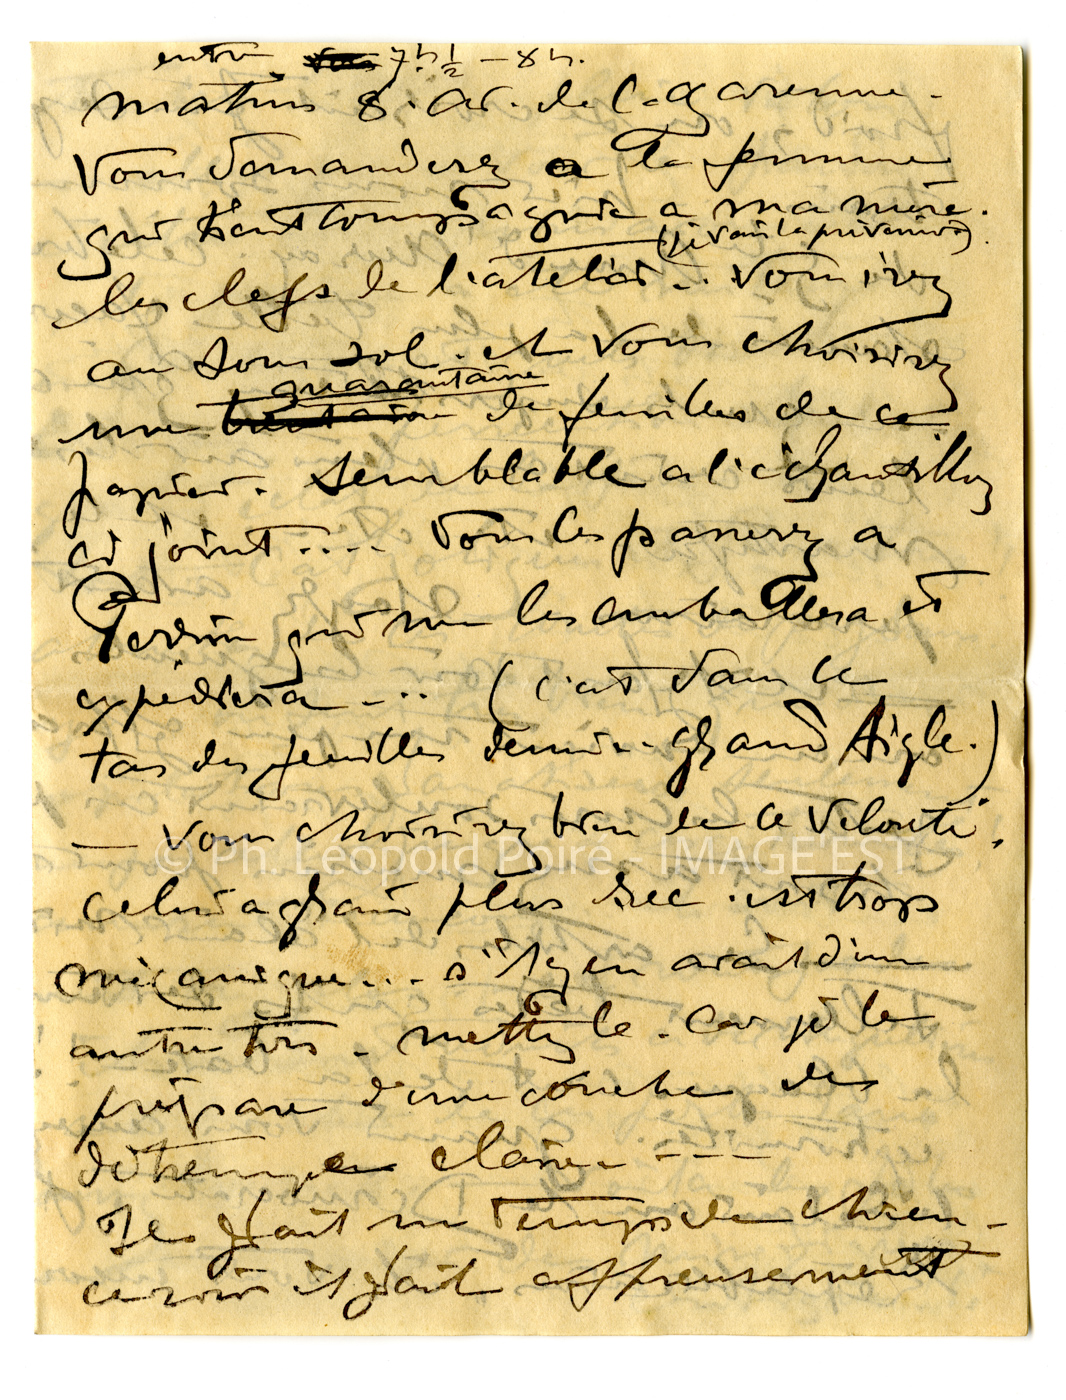 entre 7h ½ – 8h.
matin 8. av. de la garenne.
Vous demanderez a la femme
qui tient compagnie a ma mère.
(je vais la prévenir).
les clefs de l'atelier... Vous irez
au sous sol. et vous choisirez
quarantaine
une trentaine de feuilles de ce
papier. semblable a l'échantillon
ci joint.... Vous les passerez a
qui me les emballera et
expédiera... (c'est dans le
tas des feuilles demie-grand Aigle.)
— Vous choisirez bien de ce velouté.
celui a grain plus sec. est trop
mécanique... s'il y en avait d'un
autre ton. mettez le. car je le
prépare d'une couche de
détrempe claire ---
Il fait un temps de chien -
ce soir il fait affreusement
© Ph. Léopold Poiré - IMAGE'EST